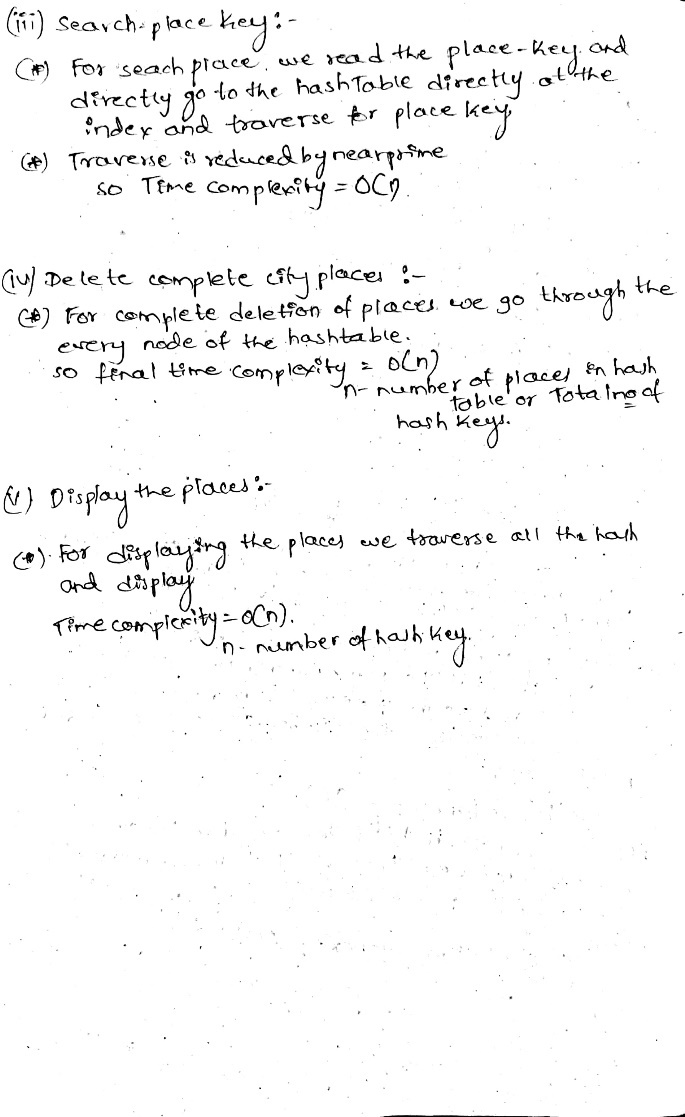 (iii) Search place key:-
(*) For seach place, we read the place-key and
directly go to the hashTable directly at the
index and traverse for place key
(*) Traverse is reduced by nearprime
so Time complexity = O(1).
(iv) Delete complete city places :-
(*) For complete deletion of places we go through the
every node of the hashtable.
so final time complexity = O(n)
n- number of places in hash
table or Total no of
hash keys.
(v) Display the places:-
(*). For displaying the places we traverse all the hash
and display
Time complexity = O(n).
n- number of hash key.